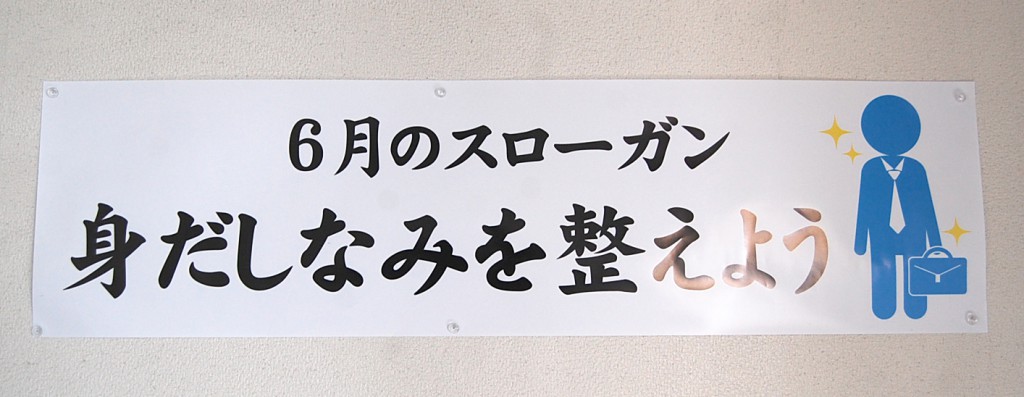 6月のスローガン
身だしなみを整えよう